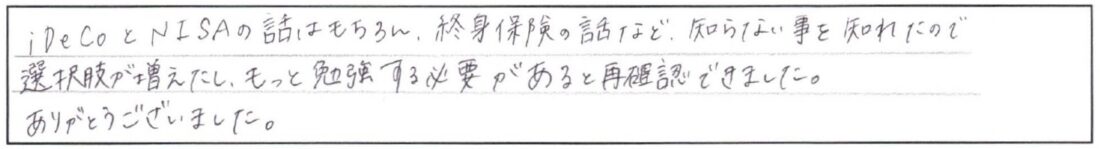 iDeCoとNISAの話はもちろん、終身保険の話など、知らない事を知れたので
選択肢が増えたし、もっと勉強する必要があると再確認できました。
ありがとうございました。